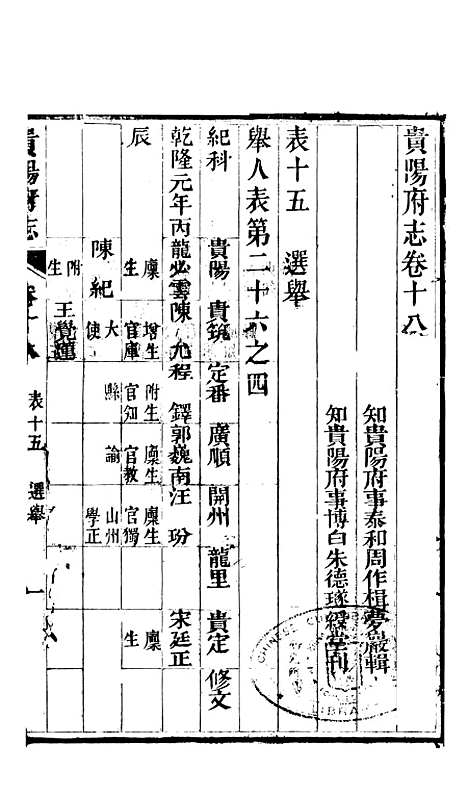 貴陽府志卷十八
知貴陽府事泰和周作楫夢巖輯
知貴陽府事博白朱德璲綬堂刊
表十五 選舉
舉人表第二十六之四
紀科 貴陽 貴筑 定番 廣順 開州 龍里 貴定 修文
乾隆元年丙 龍必雲 陳允程 鐸 郭巍南 汪玢 宋廷正
辰 廩生 增生官庫 附生官知 廩生官教 廩生官獨 廩生
陳紀 大使 縣 諭 山州學正
附生 王覺蓮
貴陽府志 卷十八 表十五 選舉 一
CHINESE
LIBRA